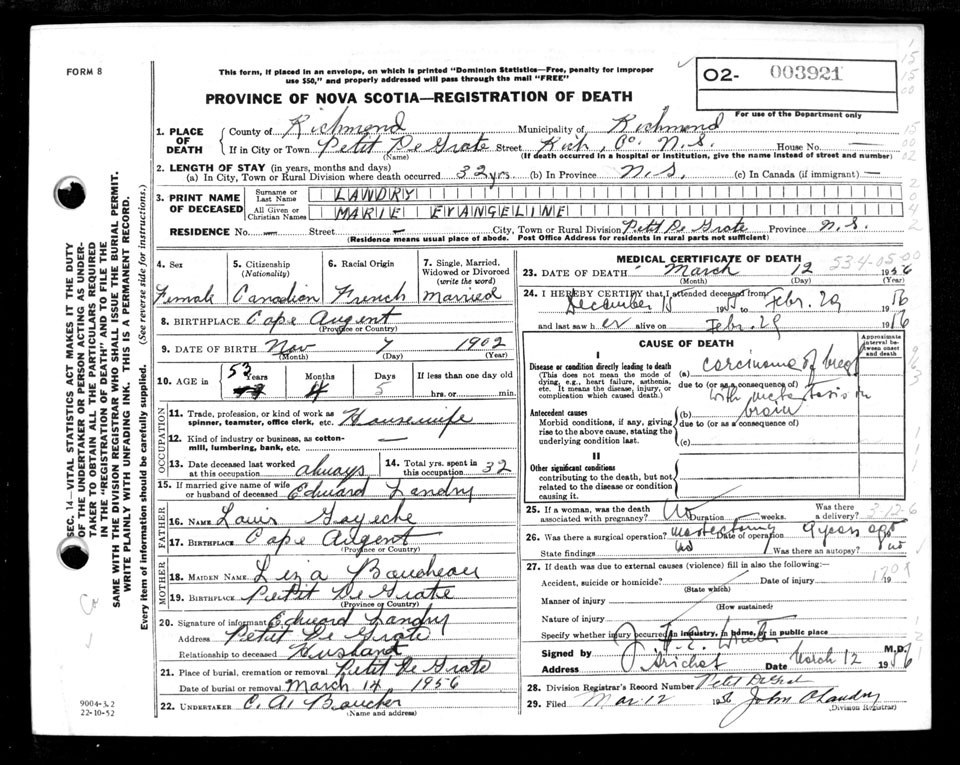 FORM 8
This form, if placed in an envelope, on which is printed "Dominion Statistics—Free, penalty for improper
use $50," and properly addressed will pass through the mail "FREE"
02- 003921
For use of the Department only
PROVINCE OF NOVA SCOTIA—REGISTRATION OF DEATH
1. PLACE OF DEATH County of Richmond Municipality of Richmond
If in City or Town Petit De Grate Street Rich. Co. N.S. House No. —
(Name) (If death occurred in a hospital or institution, give the name instead of street and number)
2. LENGTH OF STAY (in years, months and days)
(a) In City, Town or Rural Division where death occurred 32 yrs. (b) In Province N.S. (c) In Canada (if immigrant) —
3. PRINT NAME OF DECEASED Surname or Last Name LANDRY
All Given or Christian Names MARIE EVANGELINE
RESIDENCE No. — Street — City, Town or Rural Division Petit De Grate Province N.S.
(Residence means usual place of abode. Post Office Address for residents in rural parts not sufficient)
4. Sex Female
5. Citizenship (Nationality) Canadian
6. Racial Origin French
7. Single, Married, Widowed or Divorced (write the word) Married
8. BIRTHPLACE Cape Augent
(Province or Country)
9. DATE OF BIRTH Nov 7 1902
(Month) (Day) (Year)
10. AGE in 53 Years 4 Months 5 Days If less than one day old
hrs. or min.
OCCUPATION
11. Trade, profession, or kind of work as
spinner, teamster, office clerk, etc. Housewife
12. Kind of industry or business, as cotton-
mill, lumbering, bank, etc. —
13. Date deceased last worked
at this occupation always
14. Total yrs. spent in
this occupation 32
15. If married give name of wife
or husband of deceased Edward Landry
FATHER
16. NAME Louis Goyeche
17. BIRTHPLACE Cape Augent
(Province or Country)
MOTHER
18. MAIDEN NAME Liza Boudreau
19. BIRTHPLACE Petit De Grate
(Province or Country)
20. Signature of informant Edward Landry
Address Petit De Grate
Relationship to deceased Husband
21. Place of burial, cremation or removal Petit De Grate
Date of burial or removal March 14 1956
22. UNDERTAKER C. A. Boucher
(Name and address)
MEDICAL CERTIFICATE OF DEATH
534-05-00
23. DATE OF DEATH March 12 1956
(Month) (Day) (Year)
24. I HEREBY CERTIFY that I attended deceased from
December 1955 to Feb. 29 1956
and last saw her alive on Feb. 29 1956
CAUSE OF DEATH
Approximate interval between onset and death
I
Disease or condition directly leading to death
(This does not mean the mode of
dying, e.g., heart failure, asthenia,
etc. It means the disease, injury, or
complication which caused death.)
(a) carcinoma of breast
due to (or as a consequence of)
with metastasis in
Antecedent causes
Morbid conditions, if any, giving
rise to the above cause, stating the
underlying condition last.
(b) brain
due to (or as a consequence of)
(c)
II
Other significant conditions
contributing to the death, but not
related to the disease or condition
causing it.
25. If a woman, was the death
associated with pregnancy? No Duration weeks. Was there
a delivery? 3-12-6
26. Was there a surgical operation? mastectomy Date of operation 9 years ago
State findings no Was there an autopsy? no
27. If death was due to external causes (violence) fill in also the following:
Accident, suicide or homicide? Date of injury 19
(State which)
170X
Manner of injury
(How sustained)
Nature of injury
Specify whether injury occurred in industry, in home, or in public place
Signed by M.D.
Address Arichat Date March 12 1956
28. Division Registrar's Record Number Petit DeGrat
29. Filed Mar 12 1956 John Landry
(Division Registrar)
SEC. 14—VITAL STATISTICS ACT MAKES IT THE DUTY
OF THE UNDERTAKER OR PERSON ACTING AS UNDER-
TAKER TO OBTAIN ALL THE PARTICULARS REQUIRED
IN THE "REGISTRATION OF DEATH" AND TO FILE THE
SAME WITH THE DIVISION REGISTRAR WHO SHALL ISSUE THE BURIAL PERMIT.
WRITE PLAINLY WITH UNFADING INK. THIS IS A PERMANENT RECORD.
Every item of information should be carefully supplied. (See reverse side for instructions.)
9004-3.2
22-10-52